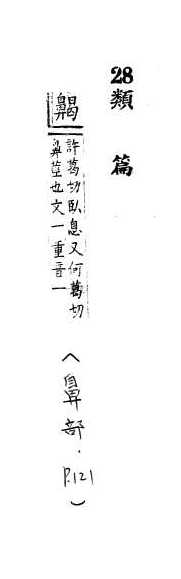 28類篇
齃
許葛切臥息又何葛切
鼻莖也文一重音一
(鼻部.P.121)